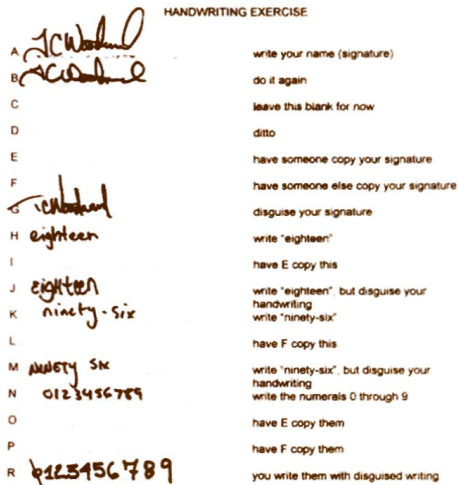 HANDWRITING EXERCISE
A JCWoodward write your name (signature)
B JCWoodward do it again
C leave this blank for now
D ditto
E have someone copy your signature
F have someone else copy your signature
G JCWoodward disguise your signature
H eighteen write "eighteen"
I have E copy this
J eighteen write "eighteen", but disguise your
handwriting
K ninety-six write "ninety-six"
L have F copy this
M NINETY SIX write "ninety-six", but disguise your
handwriting
N 0123456789 write the numerals 0 through 9
O have E copy them
P have F copy them
R 0123456789 you write them with disguised writing